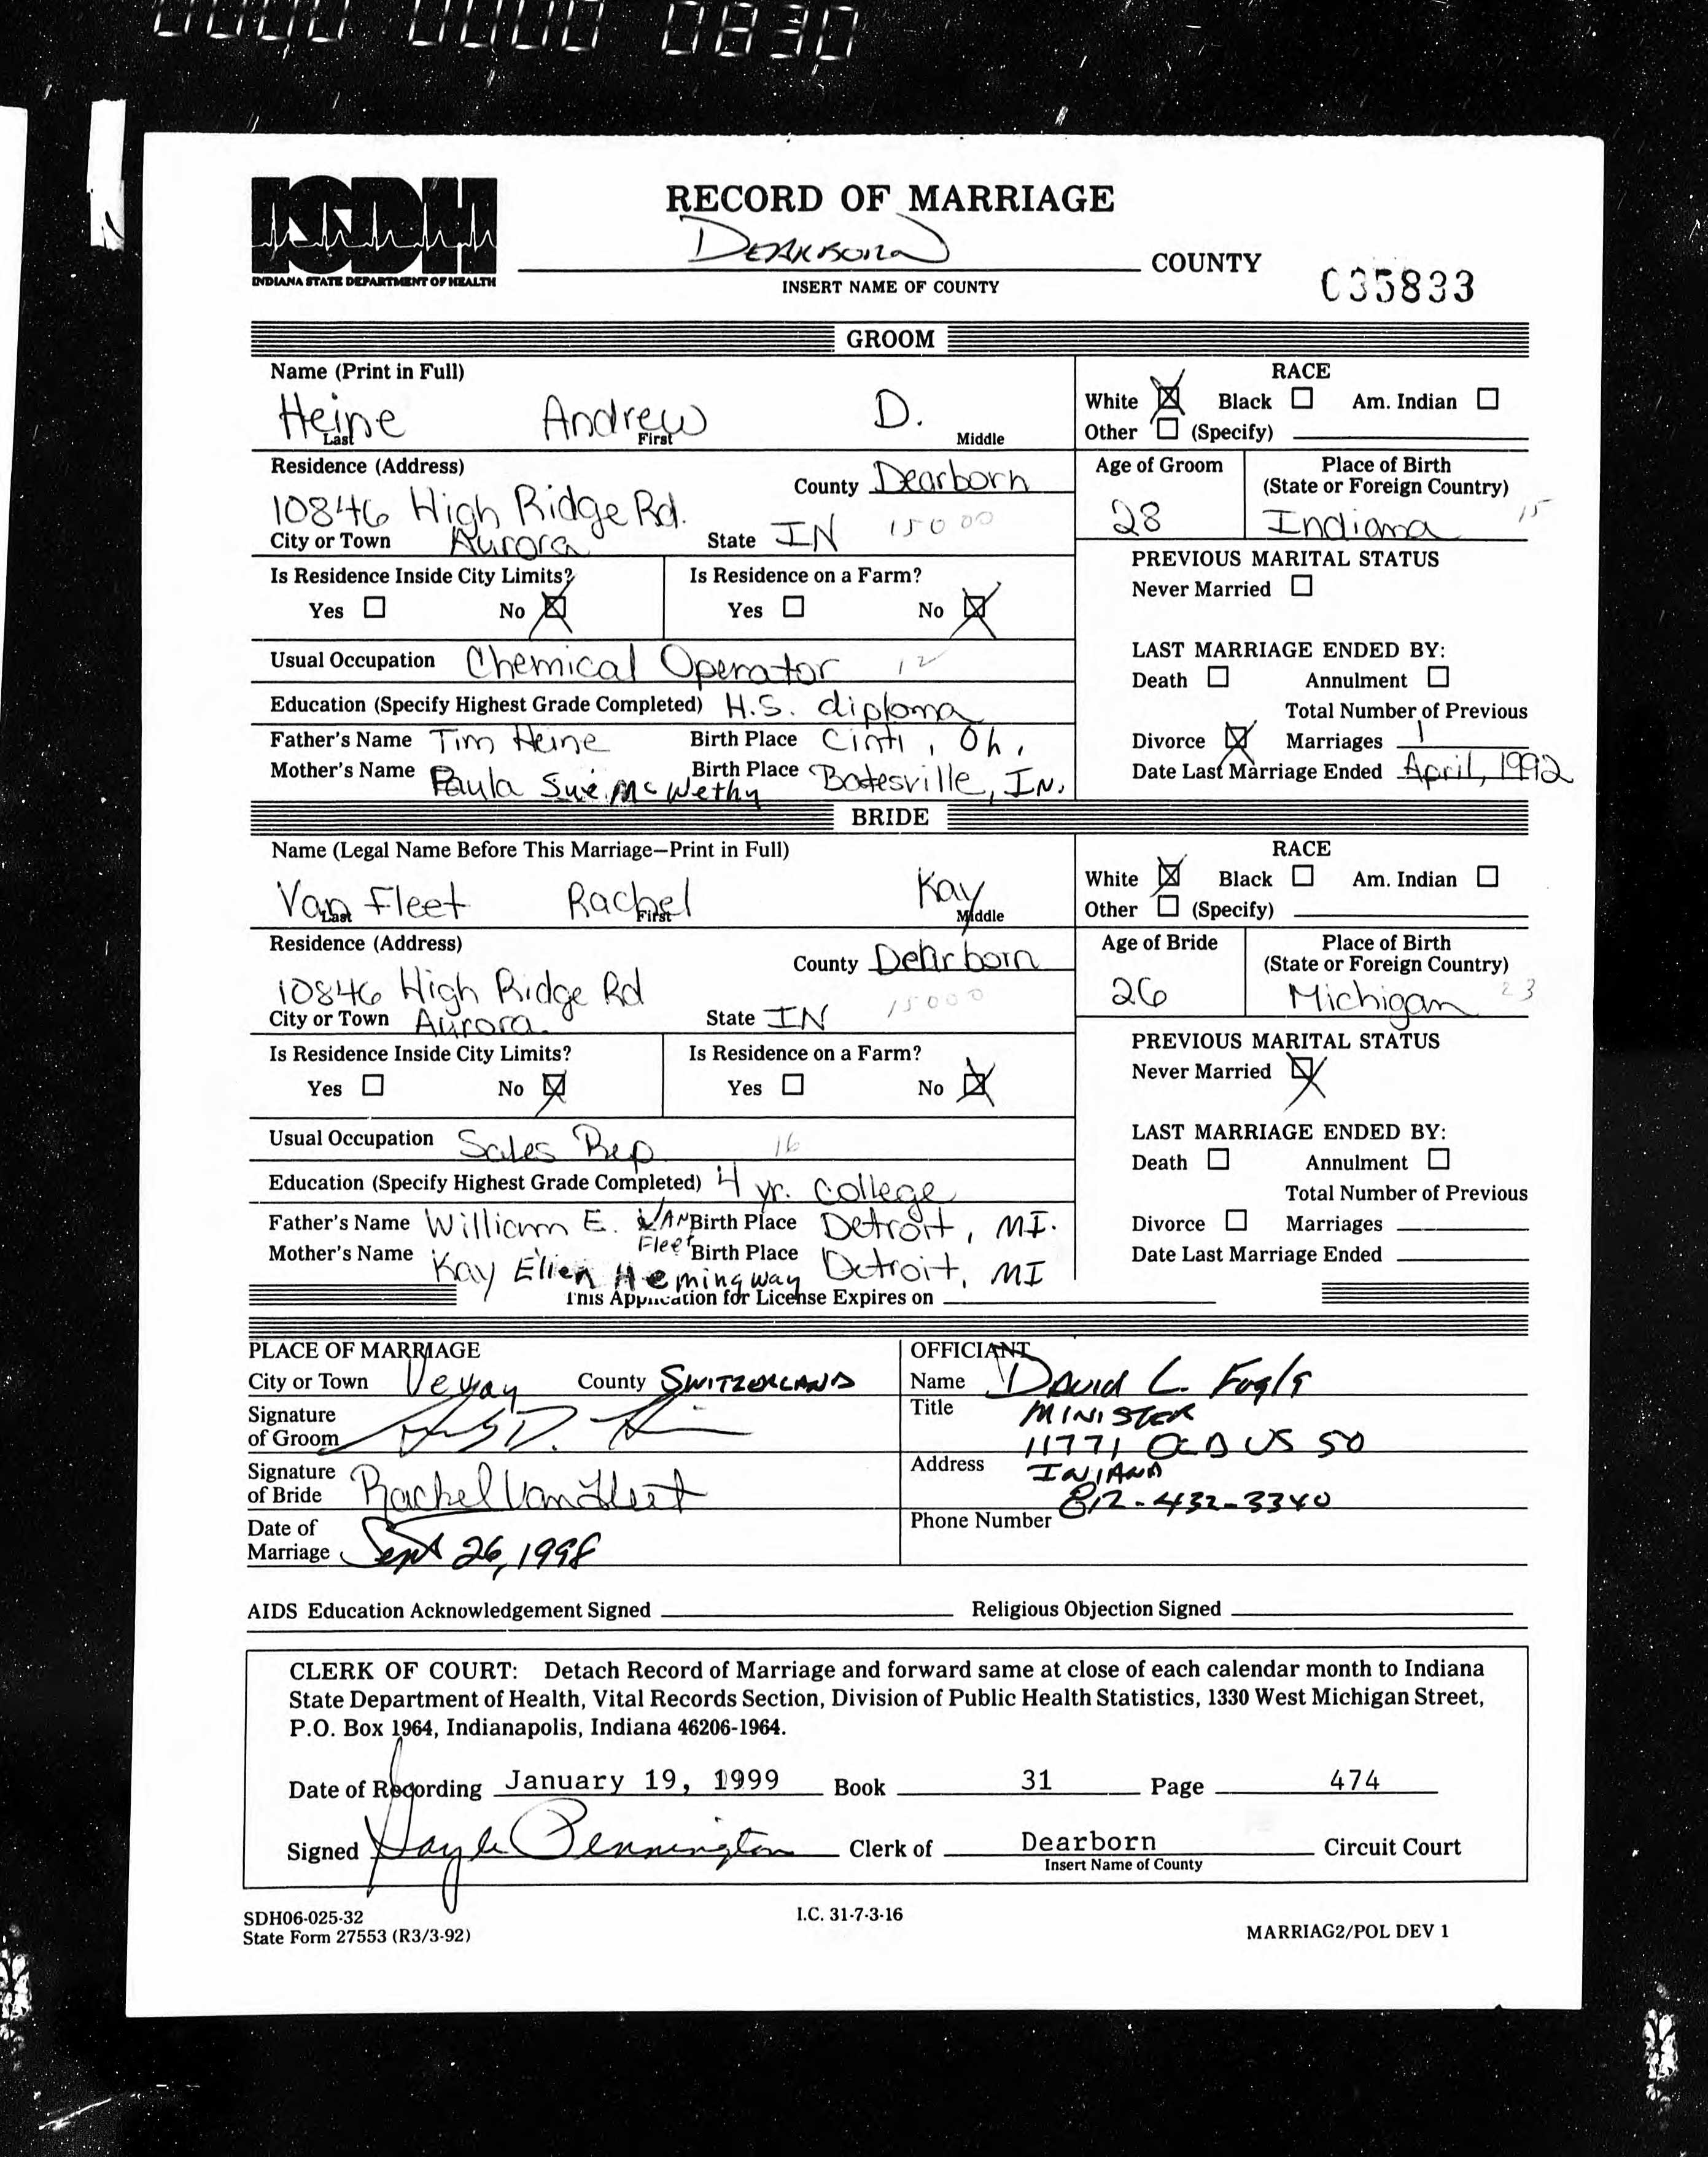 0000 0000 0830
ISDH
INDIANA STATE DEPARTMENT OF HEALTH
RECORD OF MARRIAGE
Dearborn COUNTY
INSERT NAME OF COUNTY
035833
GROOM
Name (Print in Full)
Heine Andrew D.
Last First Middle
RACE
White ☒ Black ☐ Am. Indian ☐
Other ☐ (Specify)
Residence (Address)
10846 High Ridge Rd.
County Dearborn
City or Town Aurora State IN 15000
Age of Groom
28
Place of Birth
(State or Foreign Country)
Indiana 15
Is Residence Inside City Limits?
Yes ☐ No ☒
Is Residence on a Farm?
Yes ☐ No ☒
PREVIOUS MARITAL STATUS
Never Married ☐
Usual Occupation Chemical Operator 12
Education (Specify Highest Grade Completed) H.S. diploma
Father's Name Tim Heine Birth Place Cinti, Oh.
Mother's Name Paula Sue McWethy Birth Place Batesville, IN.
LAST MARRIAGE ENDED BY:
Death ☐ Annulment ☐
Total Number of Previous
Divorce ☒ Marriages 1
Date Last Marriage Ended April, 1992
BRIDE
Name (Legal Name Before This Marriage—Print in Full)
Van Fleet Rachel Kay
Last First Middle
RACE
White ☒ Black ☐ Am. Indian ☐
Other ☐ (Specify)
Residence (Address)
10846 High Ridge Rd
County Dearborn
City or Town Aurora State IN 15000
Age of Bride
26
Place of Birth
(State or Foreign Country)
Michigan 23
Is Residence Inside City Limits?
Yes ☐ No ☒
Is Residence on a Farm?
Yes ☐ No ☒
PREVIOUS MARITAL STATUS
Never Married ☒
Usual Occupation Sales Rep 16
Education (Specify Highest Grade Completed) 4 yr. college
Father's Name William E. VAN Fleet Birth Place Detroit, MI.
Mother's Name Kay Ellen Hemingway Birth Place Detroit, MI
LAST MARRIAGE ENDED BY:
Death ☐ Annulment ☐
Total Number of Previous
Divorce ☐ Marriages
Date Last Marriage Ended
This Application for License Expires on
PLACE OF MARRIAGE
City or Town Vevay County SWITZERLAND
Signature
of Groom
Signature
of Bride Rachel Van Fleet
Date of
Marriage Sept 26, 1998
OFFICIANT
Name David L. Fogle
Title MINISTER
11771 OLD US 50
Address INIANA
812-432-3340
Phone Number
AIDS Education Acknowledgement Signed Religious Objection Signed
CLERK OF COURT: Detach Record of Marriage and forward same at close of each calendar month to Indiana
State Department of Health, Vital Records Section, Division of Public Health Statistics, 1330 West Michigan Street,
P.O. Box 1964, Indianapolis, Indiana 46206-1964.
Date of Recording January 19, 1999 Book 31 Page 474
Signed Gayle Pennington Clerk of Dearborn Circuit Court
Insert Name of County
SDH06-025-32
State Form 27553 (R3/3-92)
I.C. 31-7-3-16
MARRIAG2/POL DEV 1